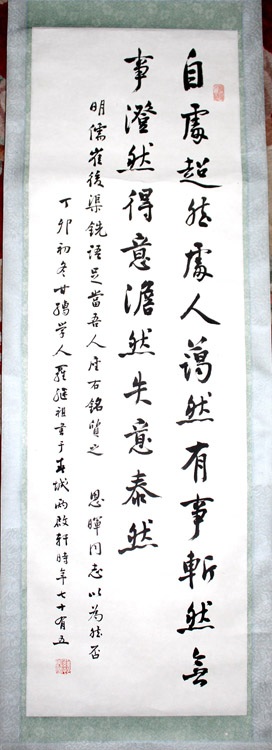 自處超然處人藹然有事斬然無
事澄然得意澹然失意泰然
明儒崔後渠銑語足當吾人座右銘質之 恩暉同志以為然否
丁卯初冬甘孺學人羅繼祖書于春城兩啟軒時年七十有五